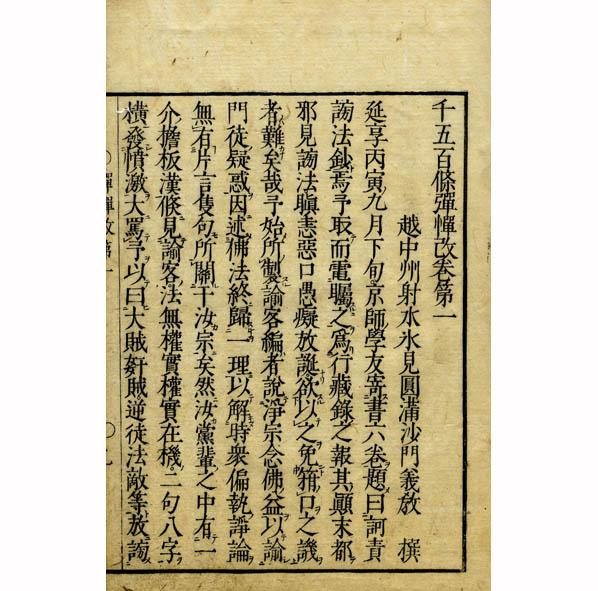 千五百條彈憚改卷第一
越中州射水氷見圓滿沙門義放 撰
延享丙寅九月下旬京師學友寄書六卷題曰訶責
謗法鈔焉予取而電矚之爲行藏錄之報其顚末都
邪見謗法瞋恚惡口愚癡放誕欲以之免箝口之譏
者難矣哉予始所製諭客編者說淨宗念佛益以諭
門徒疑惑因述佛法終歸一理以解時衆偏執諍論
無有片言隻句所關干汝宗矣然汝黨輩之中有一
介擔板漢倐見諭客法無權實權實在機二句八字
橫發憤激大罵予以曰大賊奸賊逆徒法敵等放謗